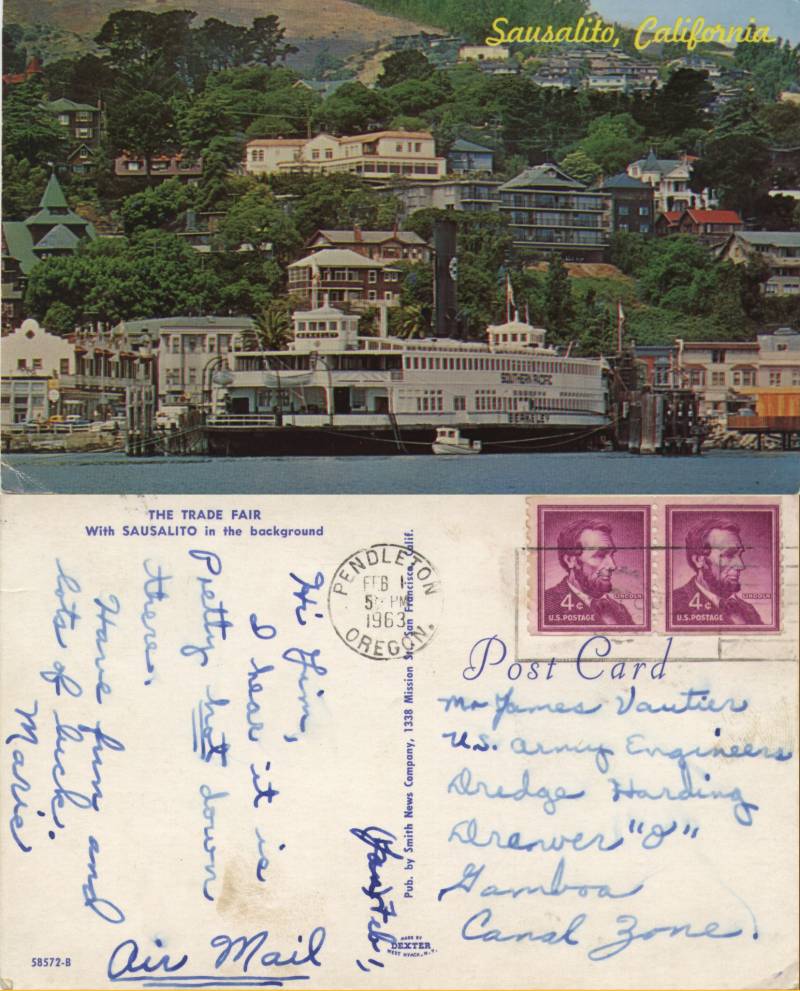 Sausalito, California
SOUTHERN PACIFIC
BERKELEY
THE TRADE FAIR
With SAUSALITO in the background
PENDLETON
FEB 1
5 PM
1963
OREGON.
4¢
LINCOLN
U.S. POSTAGE
4¢
LINCOLN
U.S. POSTAGE
Post Card
Hi Jim,
I hear it is
Pretty hot down
there.
Have fun and
lots of luck.
Marie
Air Mail
Pub. by Smith News Company, 1338 Mission St., San Francisco, Calif.
Mr James Vautier
U.S. Army Engineers
Dredge Harding
Drawer "J"
Gamboa
Canal Zone.
58572-B
MADE BY
DEXTER
WEST NYACK, N.Y.